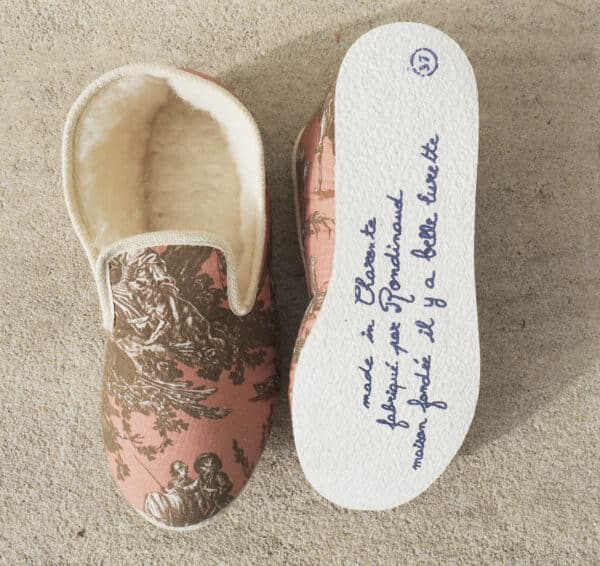 37
made in Charente
fabriqué par Rondinaud
maison fondée il y a belle lurette